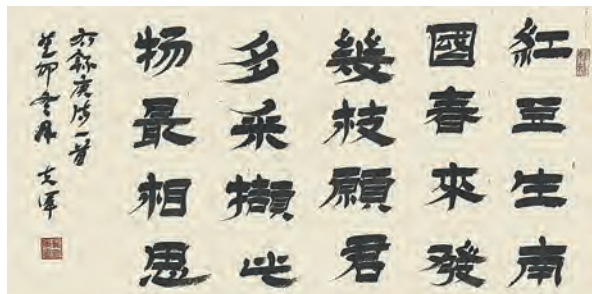 紅豆生南
國春來發
幾枝願君
多采擷此
物最相思
唐詩一首
癸卯冬